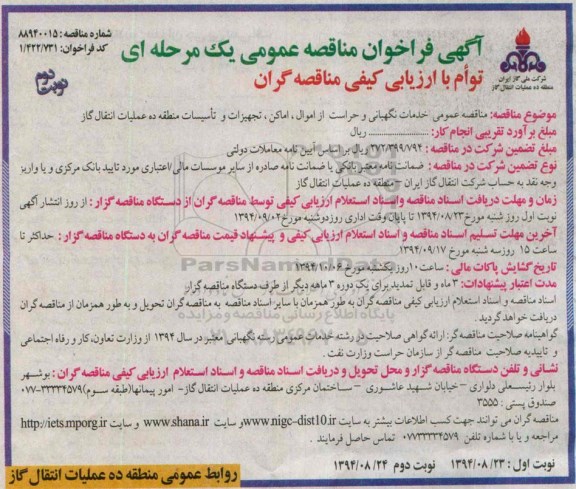 شماره مناقصه: ۸۸۹۴۰۰۱۵
کد فراخوان: ۱/۴۲۲/۷۳۱
نوبت دوم
آگهی فراخوان مناقصه عمومی یک مرحله ای
توأم با ارزیابی کیفی مناقصه گران
شرکت ملی گاز ایران
منطقه ده عملیات انتقال گاز
موضوع مناقصه: مناقصه عمومی خدمات نگهبانی و حراست از اموال، اماکن، تجهیزات و تأسیسات منطقه ده عملیات انتقال گاز
مبلغ برآورد تقریبی انجام کار: .................... ریال
مبلغ تضمین شرکت در مناقصه: ۲۷۲/۳۹۹/۷۹۴ ریال بر اساس آیین نامه معاملات دولتی
نوع تضمین شرکت در مناقصه: ضمانت نامه معتبر بانکی یا ضمانت نامه صادره از سایر موسسات مالی/اعتباری مورد تایید بانک مرکزی و یا واریز
وجه نقد به حساب شرکت انتقال گاز ایران – منطقه ده عملیات انتقال گاز
زمان و مهلت دریافت اسناد مناقصه و اسناد استعلام ارزیابی کیفی توسط مناقصه گران از دستگاه مناقصه گزار: از روز انتشار آگهی
نوبت اول روز شنبه مورخ ۱۳۹۴/۰۸/۲۳ تا پایان وقت اداری روز دوشنبه مورخ ۱۳۹۴/۰۹/۰۲
آخرین مهلت تسلیم اسناد مناقصه و اسناد استعلام ارزیابی کیفی و پیشنهاد قیمت مناقصه گران به دستگاه مناقصه گزار: حداکثر تا
ساعت ۱۵ روز سه شنبه مورخ ۱۳۹۴/۰۹/۱۷
تاریخ گشایش پاکات مالی: ساعت ۱۰ روز یکشنبه مورخ ۱۳۹۴/۱۰/۰۶
مدت اعتبار پیشنهادات: ۳ ماه و قابل تمدید برای یک دوره ۳ ماهه دیگر از طرف دستگاه مناقصه گزار
اسناد مناقصه و اسناد استعلام ارزیابی کیفی مناقصه گران به طور همزمان با سایر اسناد مناقصه به مناقصه گران تحویل و به طور همزمان از مناقصه گران
دریافت خواهد گردید.
گواهینامه صلاحیت مناقصه گر: ارائه گواهی صلاحیت در رشته خدمات عمومی رسته نگهبانی معتبر در سال ۱۳۹۴ از وزارت تعاون، کار و رفاه اجتماعی
و تاییدیه صلاحیت مناقصه گر از سازمان حراست وزارت نفت.
نشانی و تلفن دستگاه مناقصه گزار و محل تحویل و دریافت اسناد مناقصه و اسناد استعلام ارزیابی کیفی مناقصه گران: بوشهر
بلوار رئیسعلی دلواری – خیابان شهید عاشوری – ساختمان مرکزی منطقه ده عملیات انتقال گاز – امور پیمانها (طبقه سوم) ۳۳۳۳۴۵۷۹-۰۷۷
صندوق پستی: ۳۵۵۵
مناقصه گران می توانند جهت کسب اطلاعات بیشتر به سایت www.nigc-dist10.ir وسایت www.shana.ir و سایت http://iets.mporg.ir
مراجعه و یا با شماره تلفن ۰۷۷۳۳۳۳۴۵۷۹ تماس حاصل فرمایند.
نوبت اول: ۱۳۹۴/۰۸/۲۳ نوبت دوم ۱۳۹۴/۰۸/۲۴
روابط عمومی منطقه ده عملیات انتقال گاز
ParsNamadData
پایگاه اطلاع رسانی مناقصه و مزایده